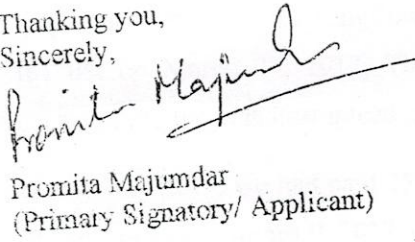 Thanking you,
Sincerely,
Promita Majumdar
Promita Majumdar
(Primary Signatory/ Applicant)